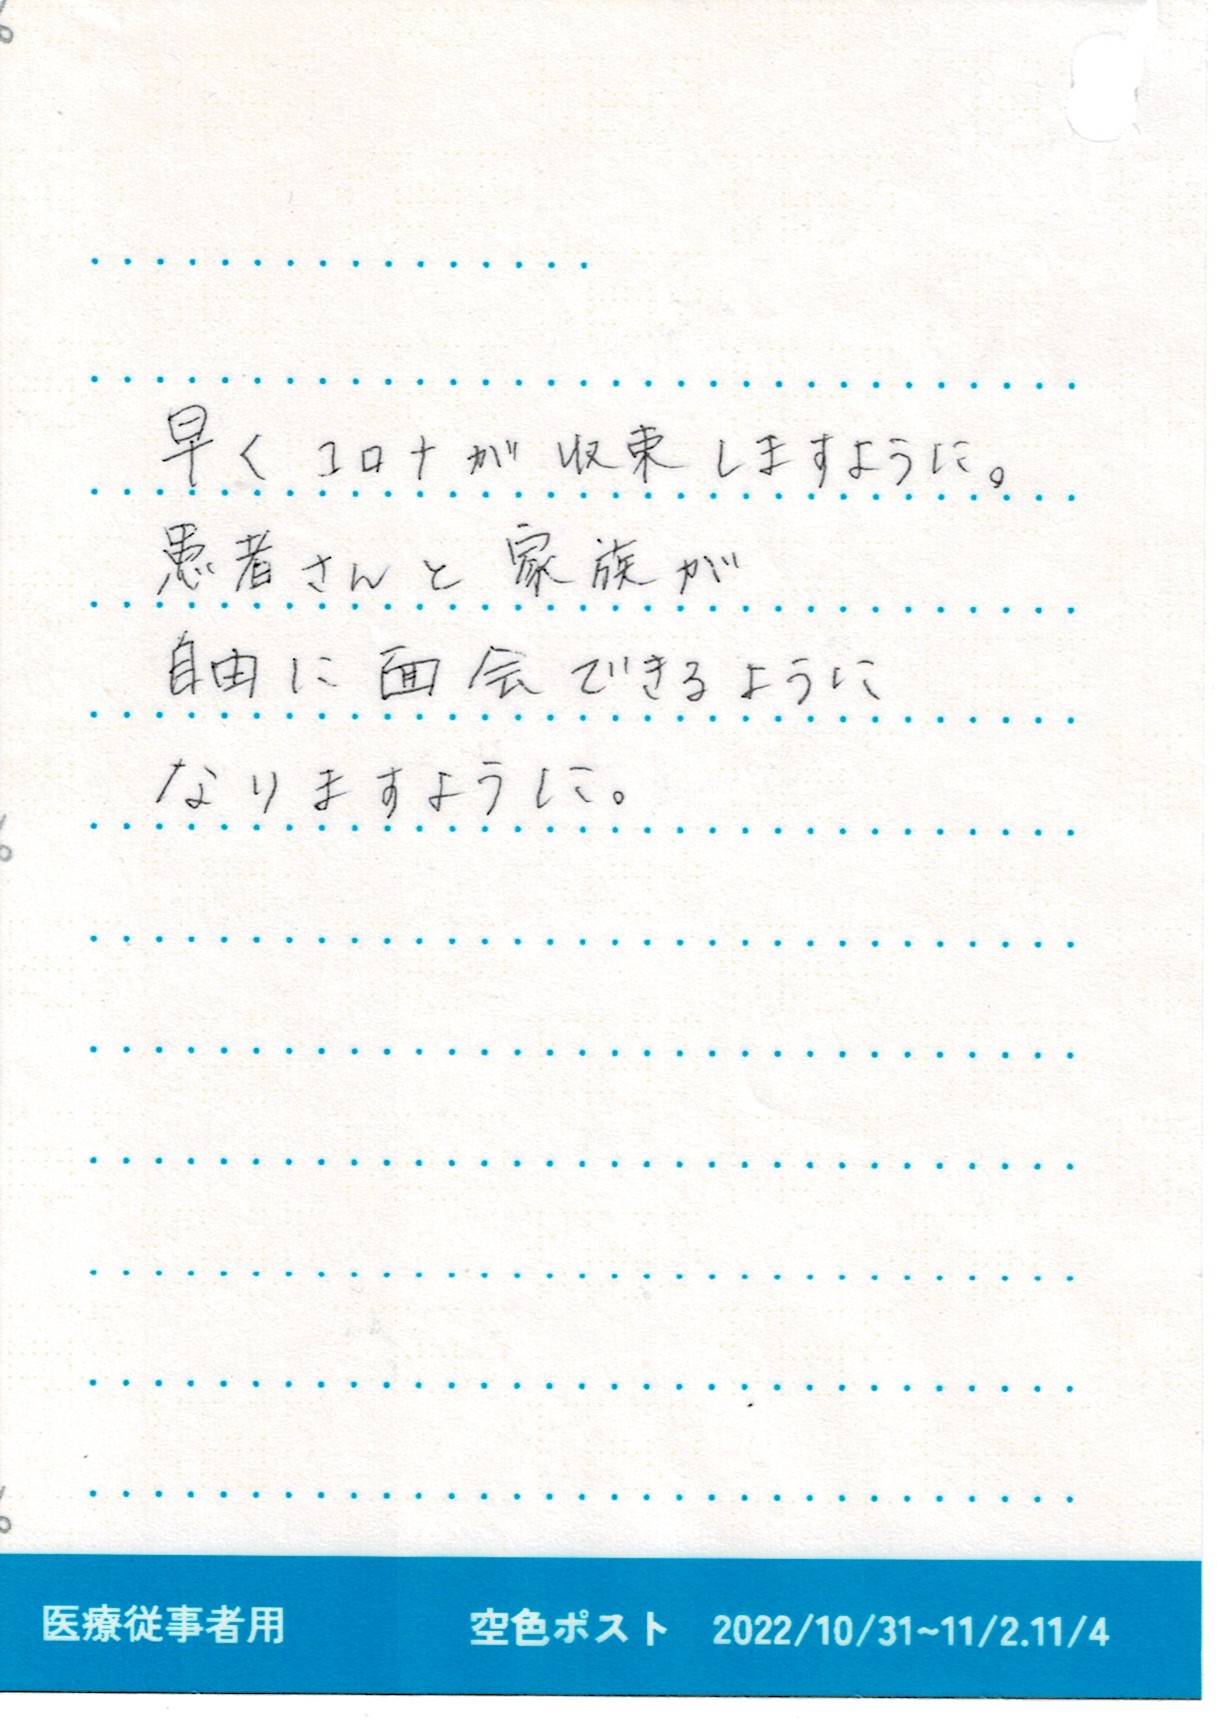 早くコロナが収束しますように。
患者さんと家族が
自由に面会できるように
なりますように。
医療従事者用 空色ポスト 2022/10/31~11/2.11/4